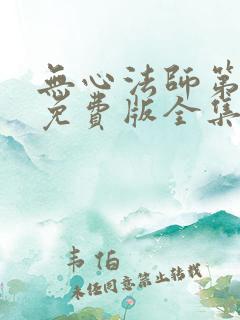 無心法師第
免費版全集
韦伯
未经同意禁止转载